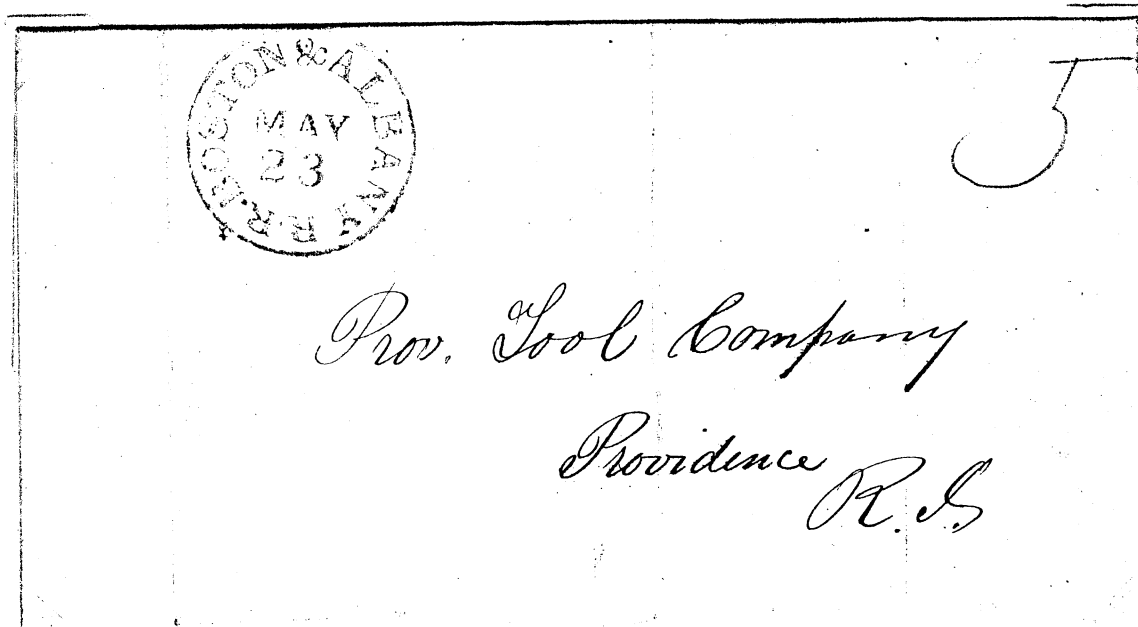 BOSTON & ALBANY R.R.
MAY
23
5
Prov. Tool Company
Providence
R.I.